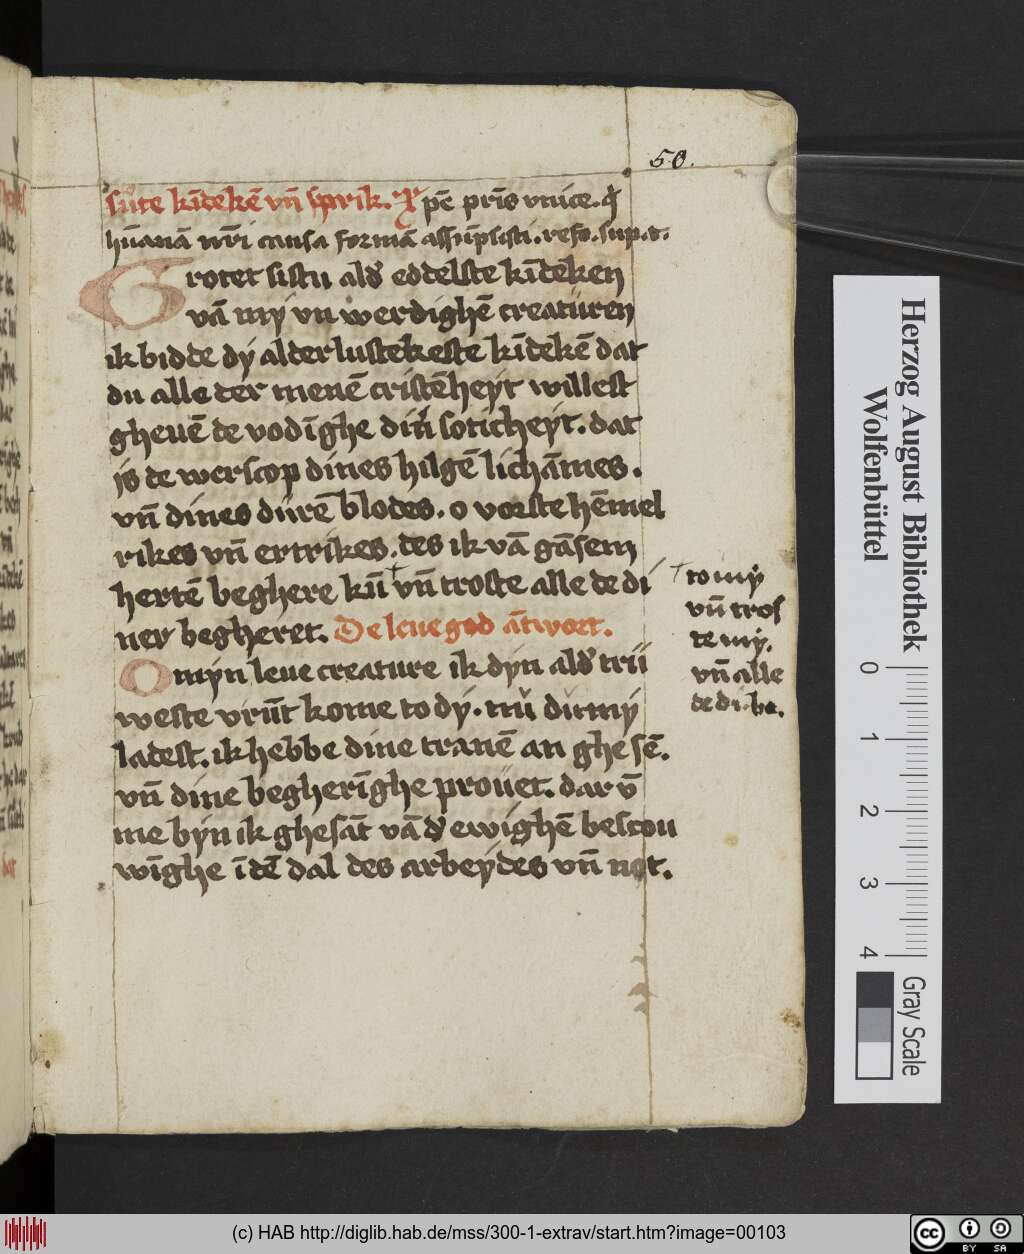 50.
sute kīdekē vn̄ sprik. Xpē pr̄is vnice. q̄
hūanā nr̄i causa formā assūpsisti. resō. sup. t.
Grotet sistu ald' eddelste kīdeken
vā mẏ vn werdighē creaturen
ik bidde dẏ alder lustekeste kīdekē dat
du alle der menē cristēheẏt willest
gheuē de vodīghe din' soticheẏt. dat
is de werscop dines hilgē lichāmes.
vn̄ dines durē blodes. o vorste hēmel
rikes vn̄ ertrikes. des ik vā gāsem
hertē beghere kū † vn̄ troste alle de di
ner begheret. De leue god ātwort.
O mẏn leue creature ik dẏn ald' trů
weste vrūt kome to dẏ. nů du mẏ
ladest. ik hebbe dine tranē an ghe sē.
vn̄ dine begherīghe prouet. dar v̄
me bẏn ik ghesāt vā d' ewighē bescou
wīghe ī dē dal des arbeẏdes vn̄ not.
† to mẏ
vn̄ tros
te mẏ.
vn̄ alle
de di. be.
Herzog August Bibliothek
Wolfenbüttel
0 1 2 3 4
Gray Scale
(c) HAB http://diglib.hab.de/mss/300-1-extrav/start.htm?image=00103
cc BY SA